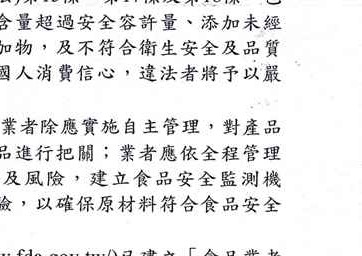 含量超過安全容許量、添加未經
加物，及不符合衛生安全及品質
國人消費信心，違法者將予以嚴
業者除應實施自主管理，對產品
品進行把關；業者應依全程管理
及風險，建立食品安全監測機
驗，以確保原材料符合食品安全
fda.gov.tw/)已建立「食品業者